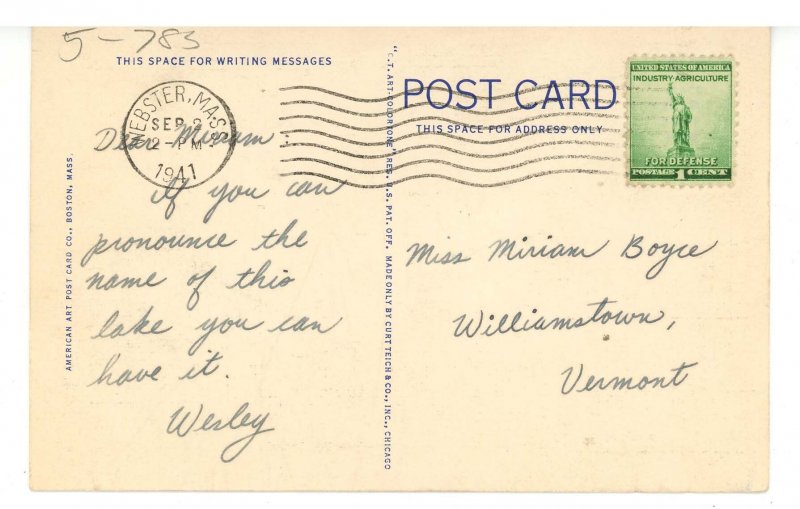 5-783
THIS SPACE FOR WRITING MESSAGES
WEBSTER, MASS.
SEP 2
12-PM
1941
Dear Miriam:
If you can
pronounce the
name of this
lake you can
have it.
Wesley
AMERICAN ART POST CARD CO., BOSTON, MASS.
"C.T. ART-COLORTONE" REG. U.S. PAT. OFF. MADE ONLY BY CURT TEICH & CO., INC., CHICAGO
POST CARD
THIS SPACE FOR ADDRESS ONLY
UNITED STATES OF AMERICA
INDUSTRY AGRICULTURE
FOR DEFENSE
POSTAGE 1 CENT
Miss Miriam Boyce
Williamstown,
Vermont